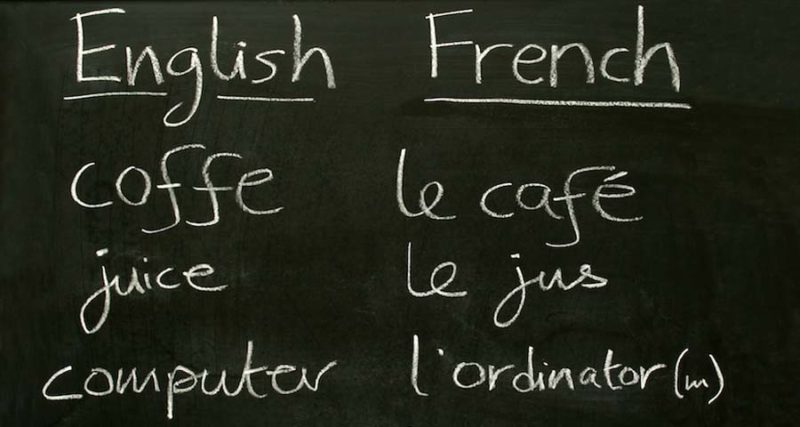 English French
coffe le café
juice le jus
computer l'ordinator (m)